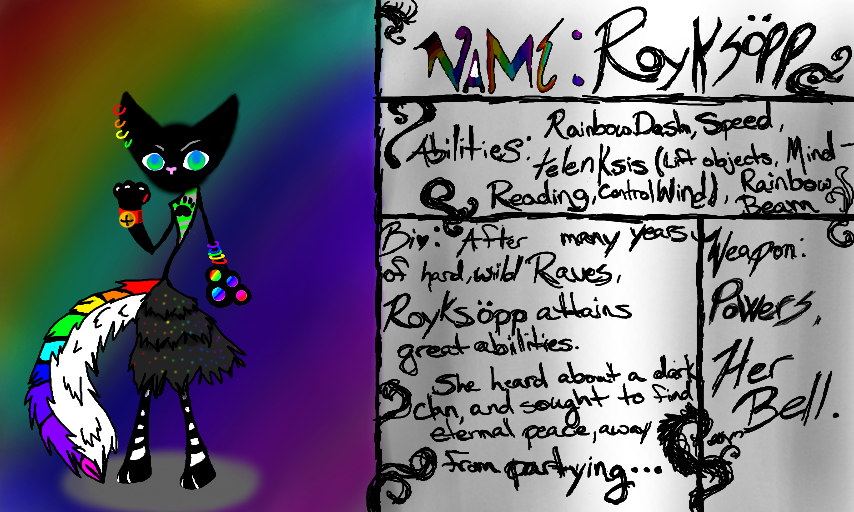 NAME: RoyKsöpp
Abilities: RainbowDash, Speed,
telenKsis (Lift objects, Mind-
Reading, Control Wind), Rainbow
Beam
Bio: After many years
of hard, wild Raves,
RoyKsöpp attains
great abilities.
She heard about a dark
Clan, and sought to find
eternal peace, away
from partying...
Weapon:
Powers,
Her
Bell.